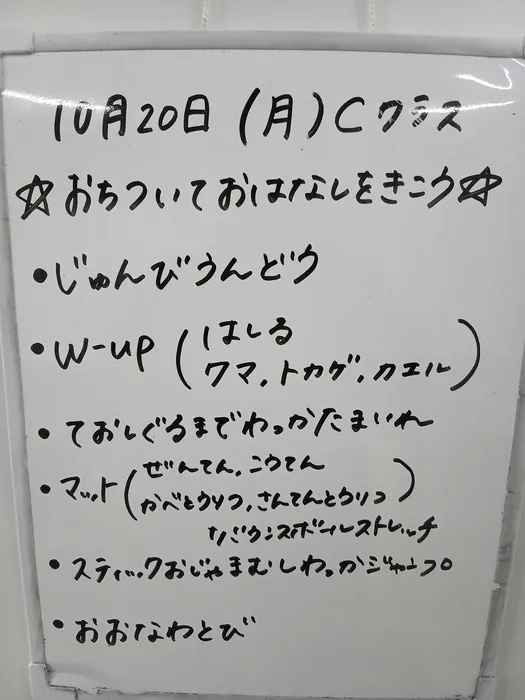 10月20日(月)Cクラス
☆おちついておはなしをきこう☆
・じゅんびうんどう
・W-up(はしる
クマ,トカゲ,カエル)
・ておしぐるまでわっかたまいれ
・マット(ぜんてん,こうてん
かべとうりつ,さんてんとうりつ)
バウンスボールストレッチ
・スティックおじゃまむしわっかジャンプ
・おおなわとび